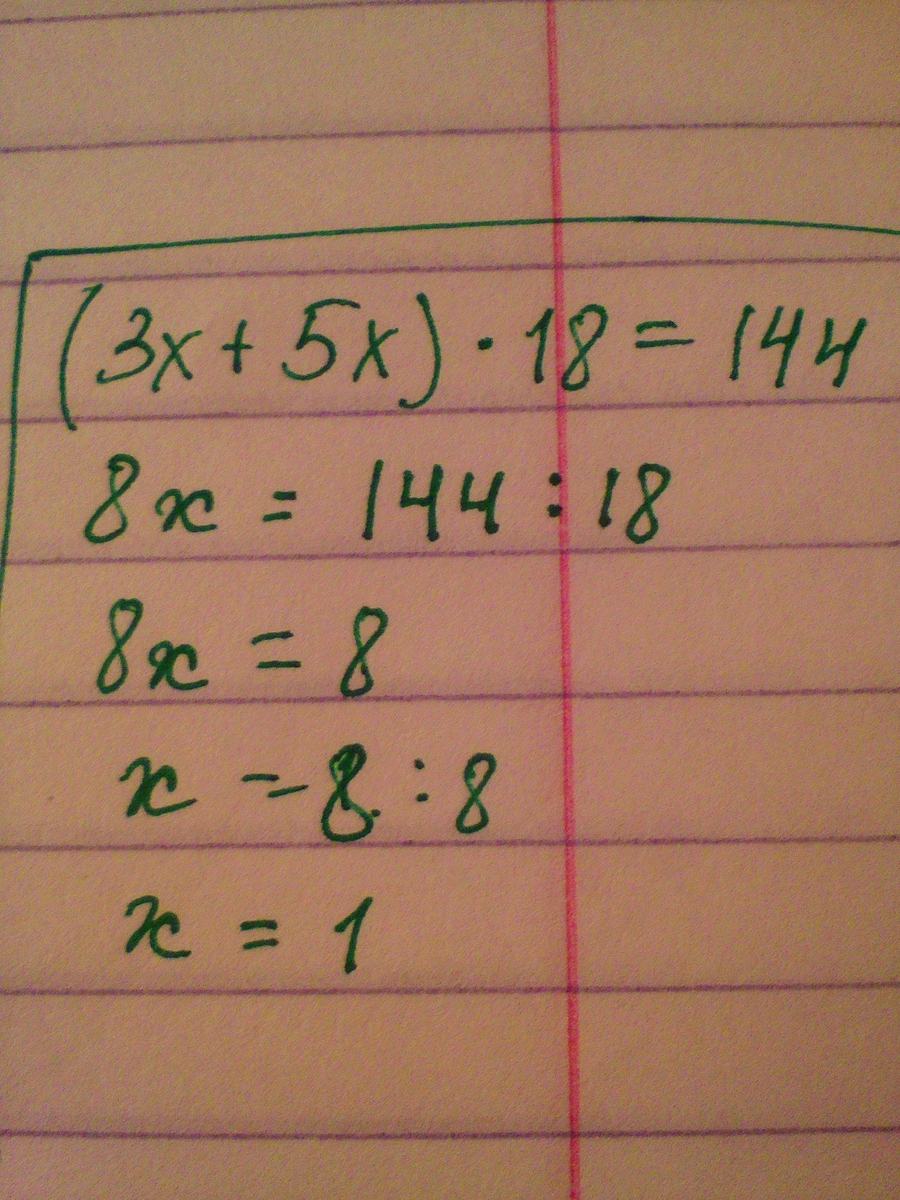 (3x + 5x) · 18 = 144
8x = 144 : 18
8x = 8
x = 8 : 8
x = 1